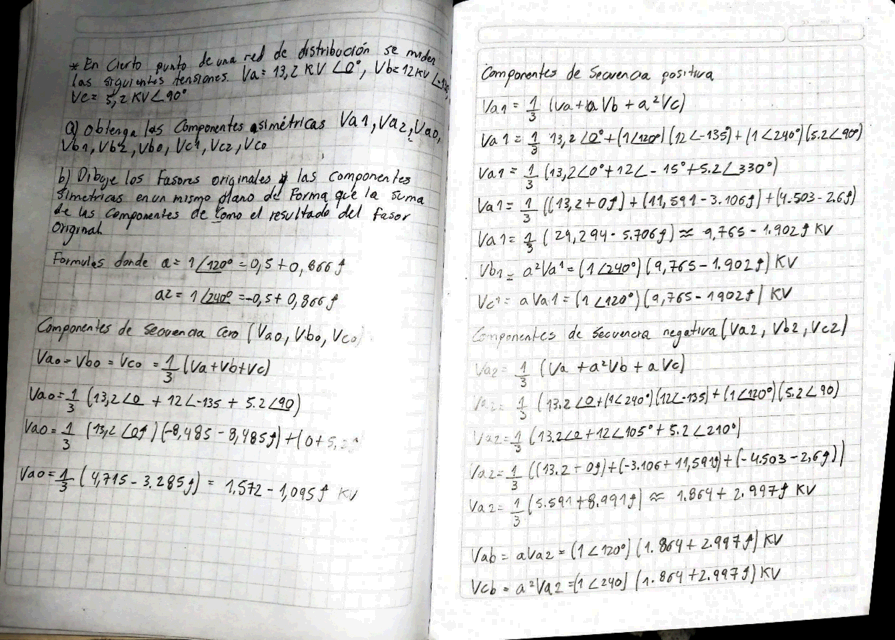 * En Cierto punto de una red de distribución se miden
las siguientes tensiones Va = 13,2 KV ∠0°, Vb = 12 KV
Vc = 5,2 KV ∠90°
a) obtenga las Componentes asimétricas Va1, Va2, Va0,
Vb1, Vb2, Vb0, Vc1, Vc2, Vc0
b) Dibuje los Fasores originales y las componentes
Simetricas en un mismo plano de Forma que la suma
de las Componentes de como el resultado del fasor
Original
Formulas donde a = 1∠120° = 0,5 + 0,866j
a2 = 1∠240° = -0,5 + 0,866j
Componentes de Secuencia Cero (Va0, Vb0, Vc0)
Va0 = Vb0 = Vc0 = 1/3 (Va + Vb + Vc)
Va0 = 1/3 (13,2∠0 + 12∠-135 + 5.2∠90)
Va0 = 1/3 (13,2∠0j) (-8,485 - 8,485j) + (0 + 5,2
Va0 = 1/3 (4,715 - 3.285j) = 1,572 - 1,095j KV
Componentes de Secuencia positiva
Va1 = 1/3 (Va + a Vb + a² Vc)
Va1 = 1/3 13,2∠0° + (1∠120°) (12∠-135) + (1∠240°) (5.2∠90°)
Va1 = 1/3 (13,2∠0° + 12∠-15° + 5.2∠330°)
Va1 = 1/3 ((13,2 + 0j) + (11,591 - 3.106j) + (4.503 - 2.6j)
Va1 = 1/3 (29,294 - 5.706j) ≈ 9,765 - 1.902j KV
Vb1 = a² Va1 = (1∠240°) (9,765 - 1.902j) KV
Vc1 = a Va1 = (1∠120°) (9,765 - 1902j) KV
Componentes de Secuencia negativa (Va2, Vb2, Vc2)
Va2 = 1/3 (Va + a² Vb + a Vc)
Va2 = 1/3 (13,2∠0 + (1∠240°) (12∠-135) + (1∠120°) (5.2∠90)
Va2 = 1/3 (13.2∠0 + 12∠105° + 5.2∠210°)
Va2 = 1/3 ((13.2 + 0j) + (-3.106 + 11,591j) + (-4.503 - 2,6j))
Va2 = 1/3 (5.591 + 8.991j) ≈ 1.864 + 2.997j KV
Vab = a Va2 = (1∠120°) (1.864 + 2.997j) KV
Vcb = a² Va2 = (1∠240) (1.864 + 2.997j) KV